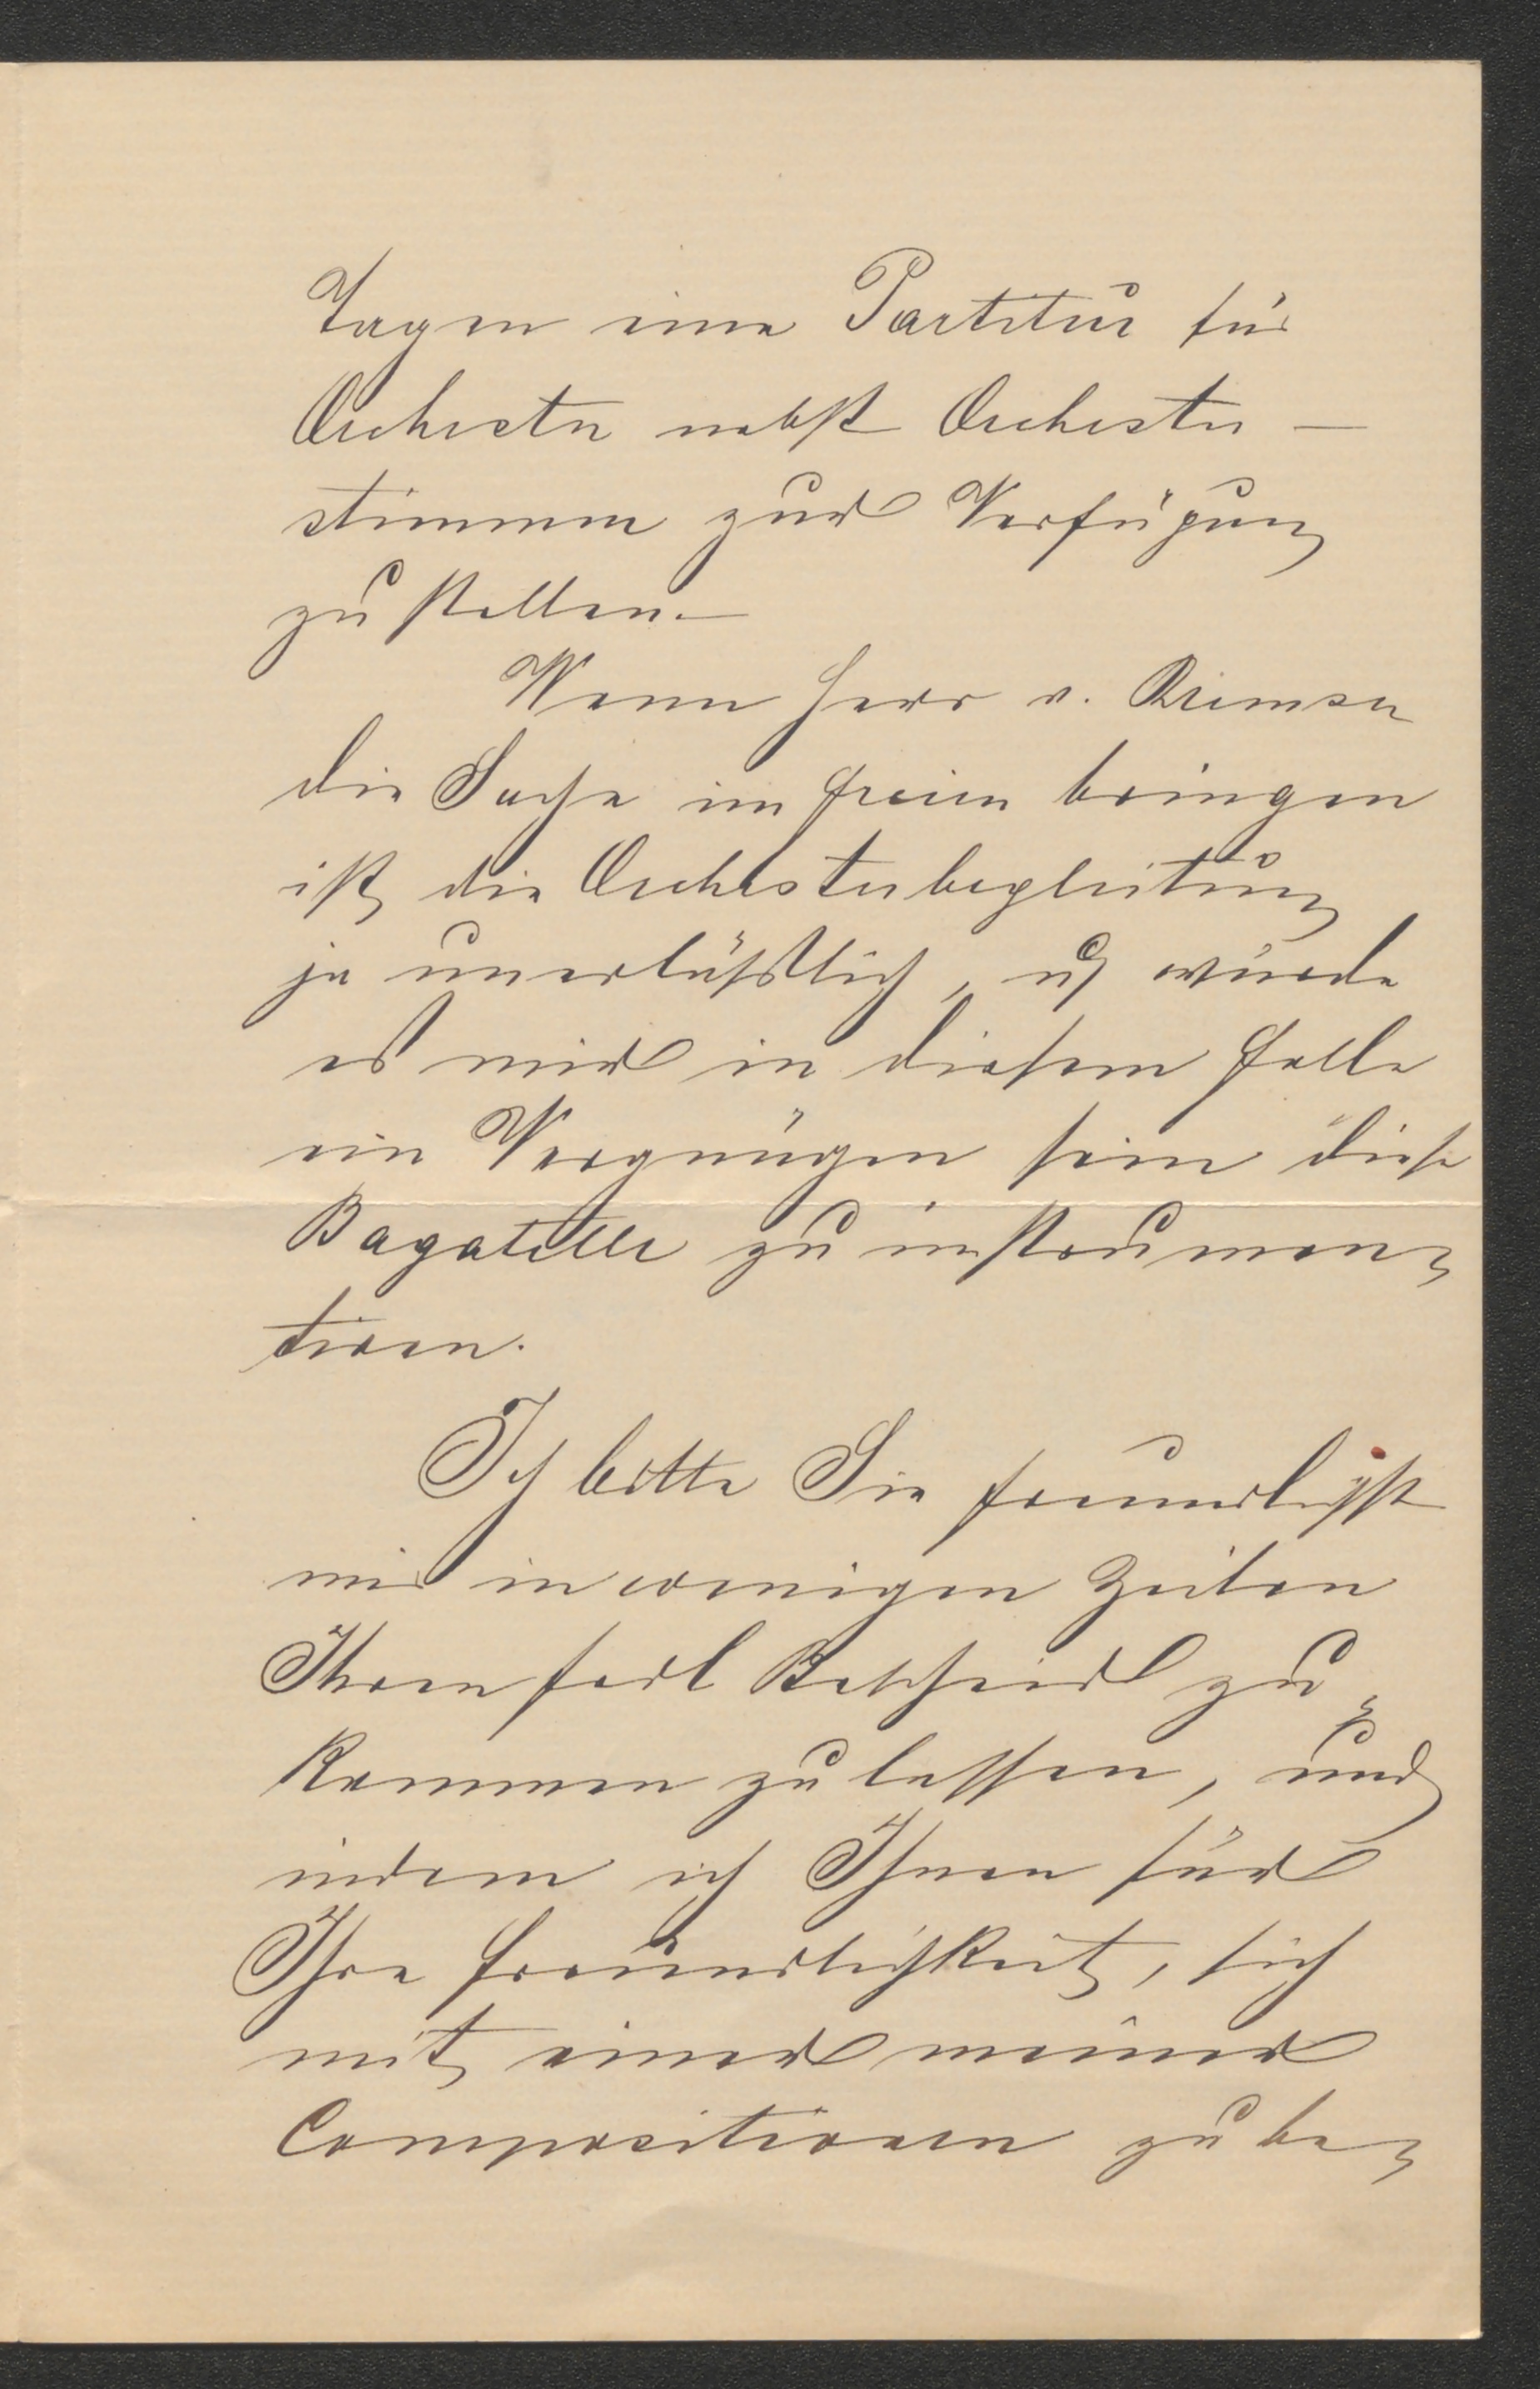 Tagen eine Partitur für
Orchester nebst Orchester –
stimmen zur Verfügung
zu stellen. –
Wenn Herr v.
die Sache im Freien bringen
ist die Orchesterbegleitung
ja unerläßlich, u. würde
es mir in diesem Falle
ein Vergnügen sein diese
Bagatelle zu instrumen-
tiren.
Ich bitte Sie freundlichst
mir in wenigen Zeilen
Ihren Bescheid zu-
kommen zu lassen, und
indem ich Ihnen für
Ihre Freundlichkeit, sich
mit einer meiner
Compositionen zu be-